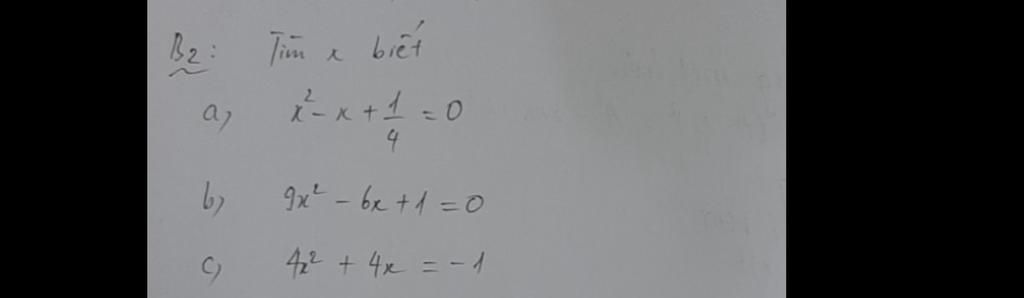 B2: Tìm x biết
a, x² - x + 1/4 = 0
b, 9x² - 6x + 1 = 0
c, 4x² + 4x = -1